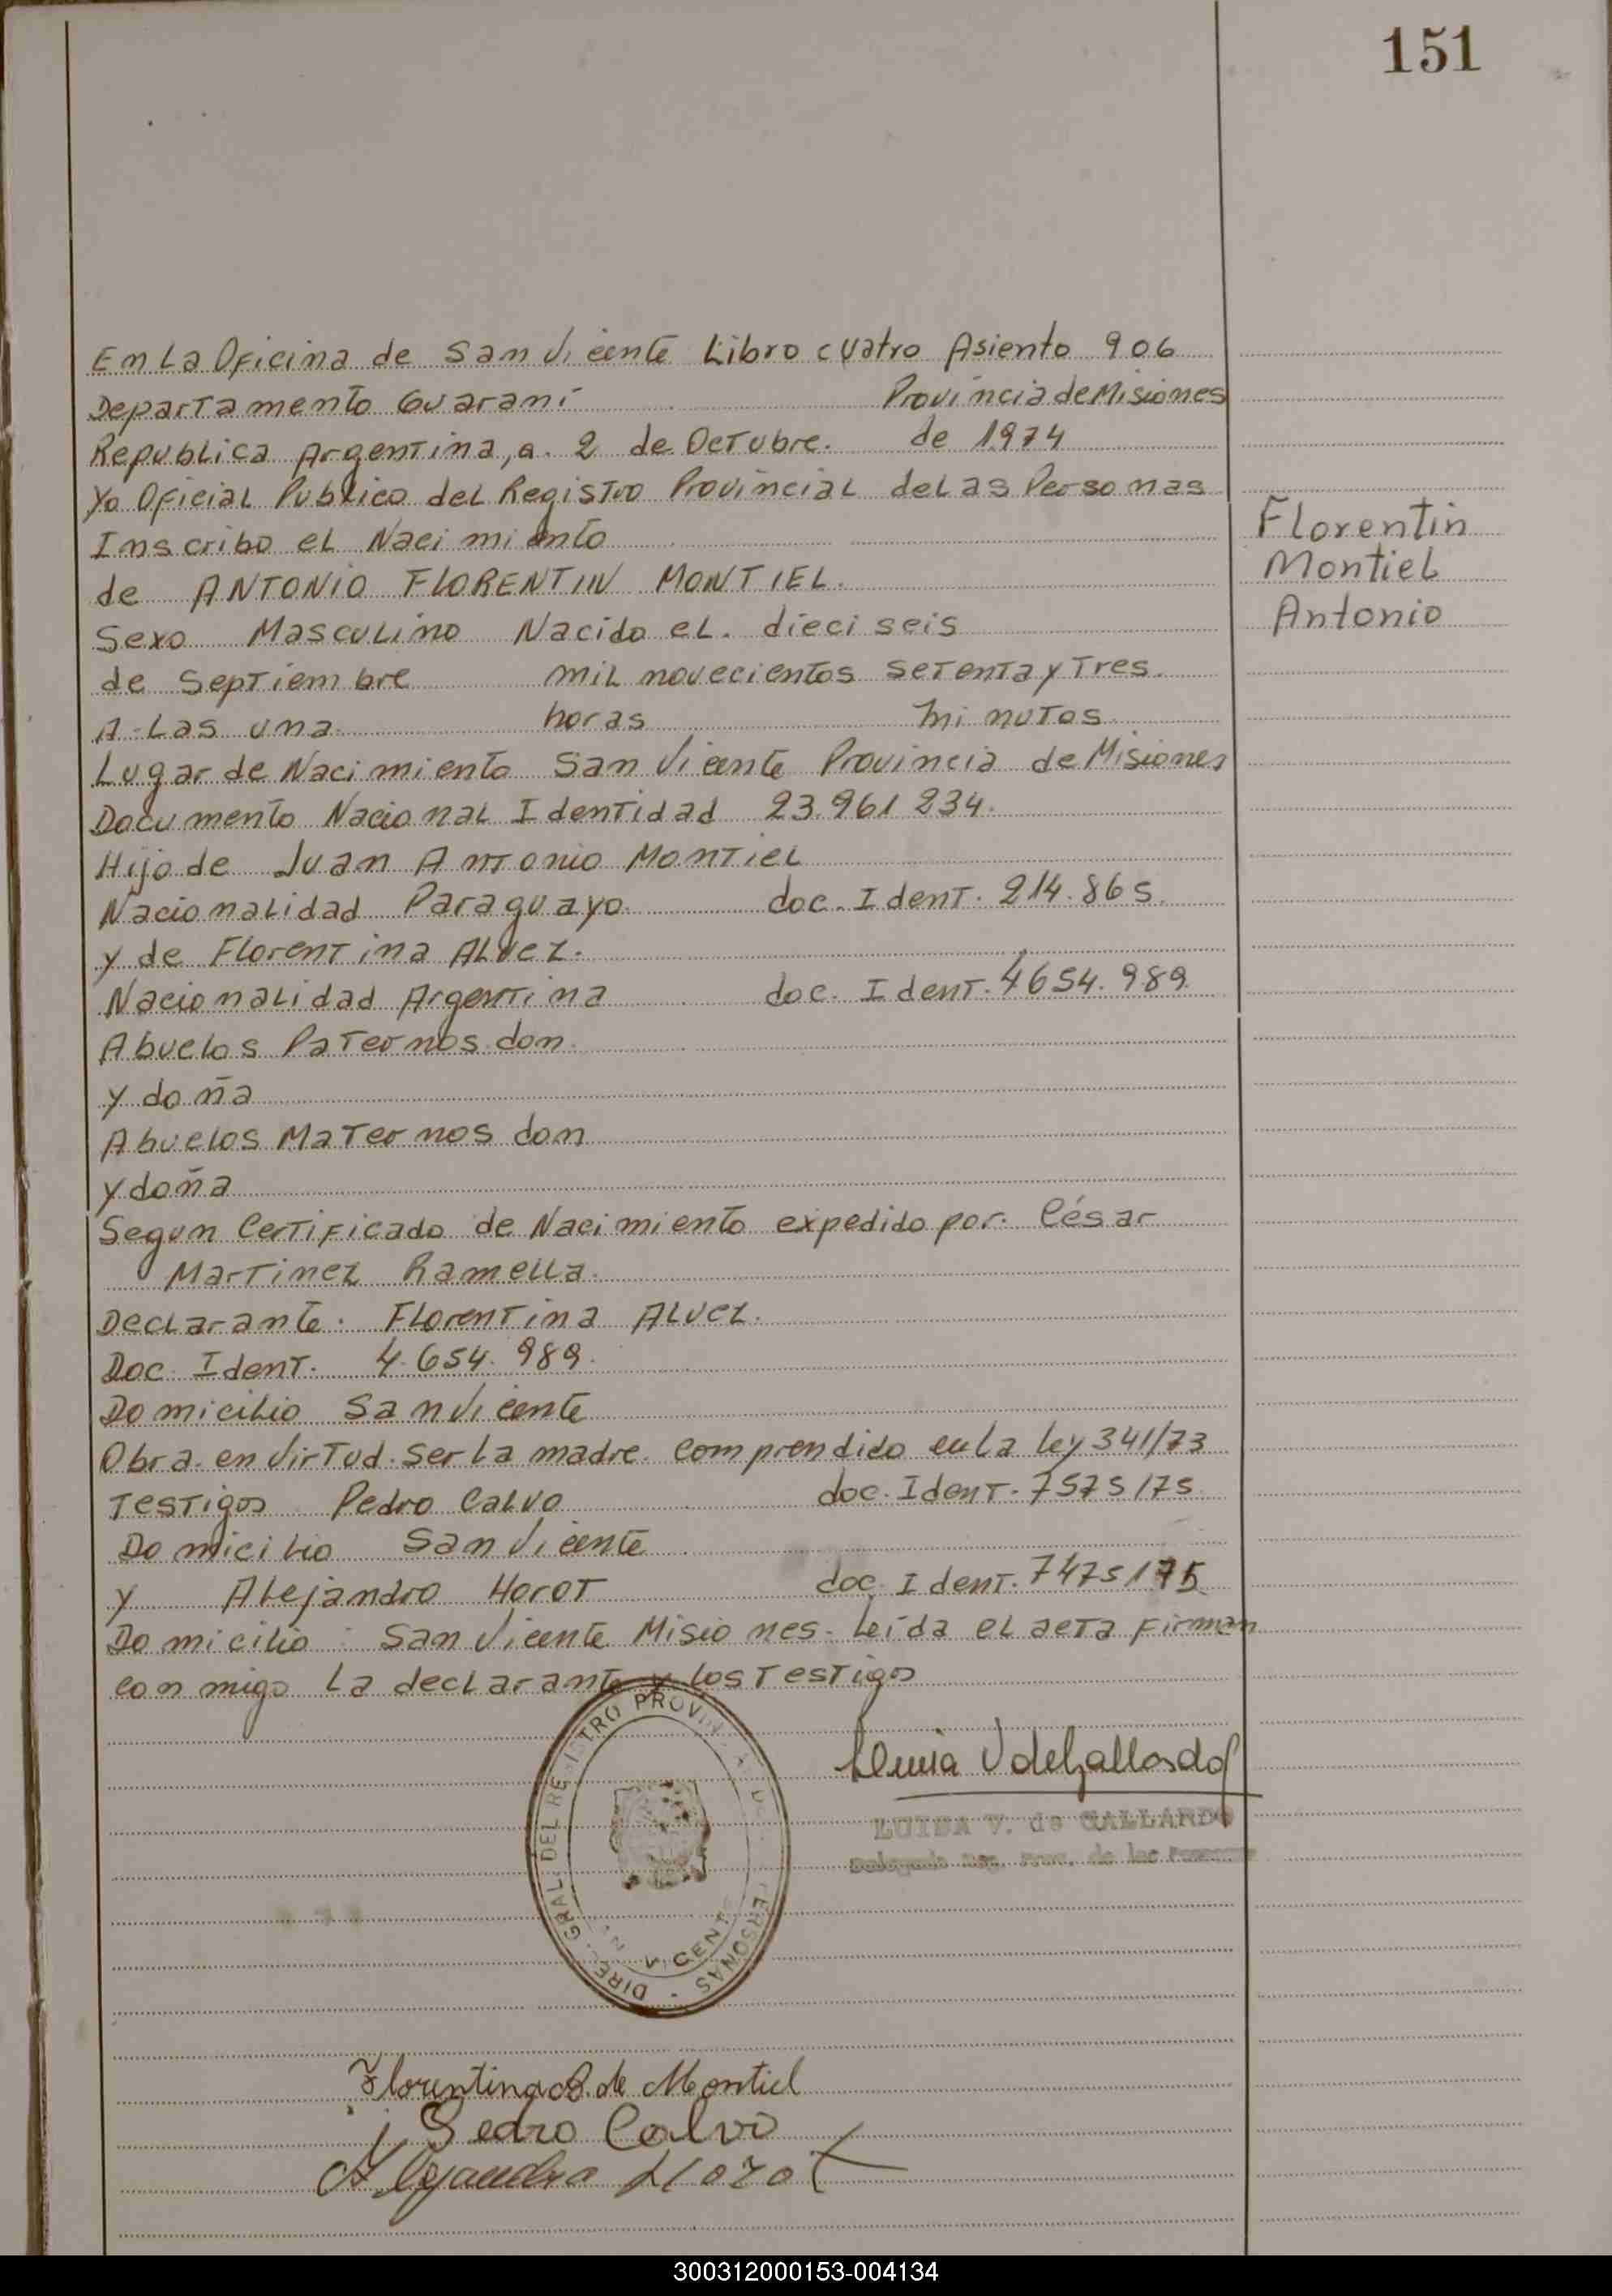 151
En La Oficina de San Vicente Libro cuatro Asiento 906
Departamento Guaraní Provincia de Misiones
Republica Argentina, a. 2 de Octubre. de 1974
Yo Oficial Publico del Registro Provincial de Las Personas
Inscribo el Nacimiento
de ANTONIO FLORENTIN MONTIEL.
Florentin
Montiel
Antonio
Sexo Masculino Nacido el. dieciseis
de Septiembre mil novecientos setenta y Tres.
A-Las una. horas minutos
Lugar de Nacimiento San Vicente Provincia de Misiones
Documento Nacional Identidad 23.961 234.
Hijo de Juan Antonio Montiel
Nacionalidad Paraguayo. doc. Ident. 214.865.
y de Florentina Alvez.
Nacionalidad Argentina doc. Ident. 4654.989.
Abuelos Paternos don
y doña
Abuelos Maternos don
y doña
Segun Certificado de Nacimiento expedido por. César
Martinez Ramella.
Declarante. Florentina Alvez.
Doc. Ident. 4.654.989.
Domicilio San Vicente
Obra. en virtud. ser la madre. comprendido en la ley 341/73
Testigos Pedro Calvo doc. Ident. 7575175
Domicilio San Vicente
y Alejandro Horot doc. Ident. 7475175
Domicilio San Vicente Misiones. Leída el acta Firman
conmigo La declarante y los Testigos
V de Gallardo
LUISA V. de GALLARDO
Reg. Prov. de las Personas
DIREC. GRAL. DEL REGISTRO PROVINCIAL DE PERSONAS
Florentina A. de Montiel
Pedro Calvo
Alejandro Horot
300312000153-004134